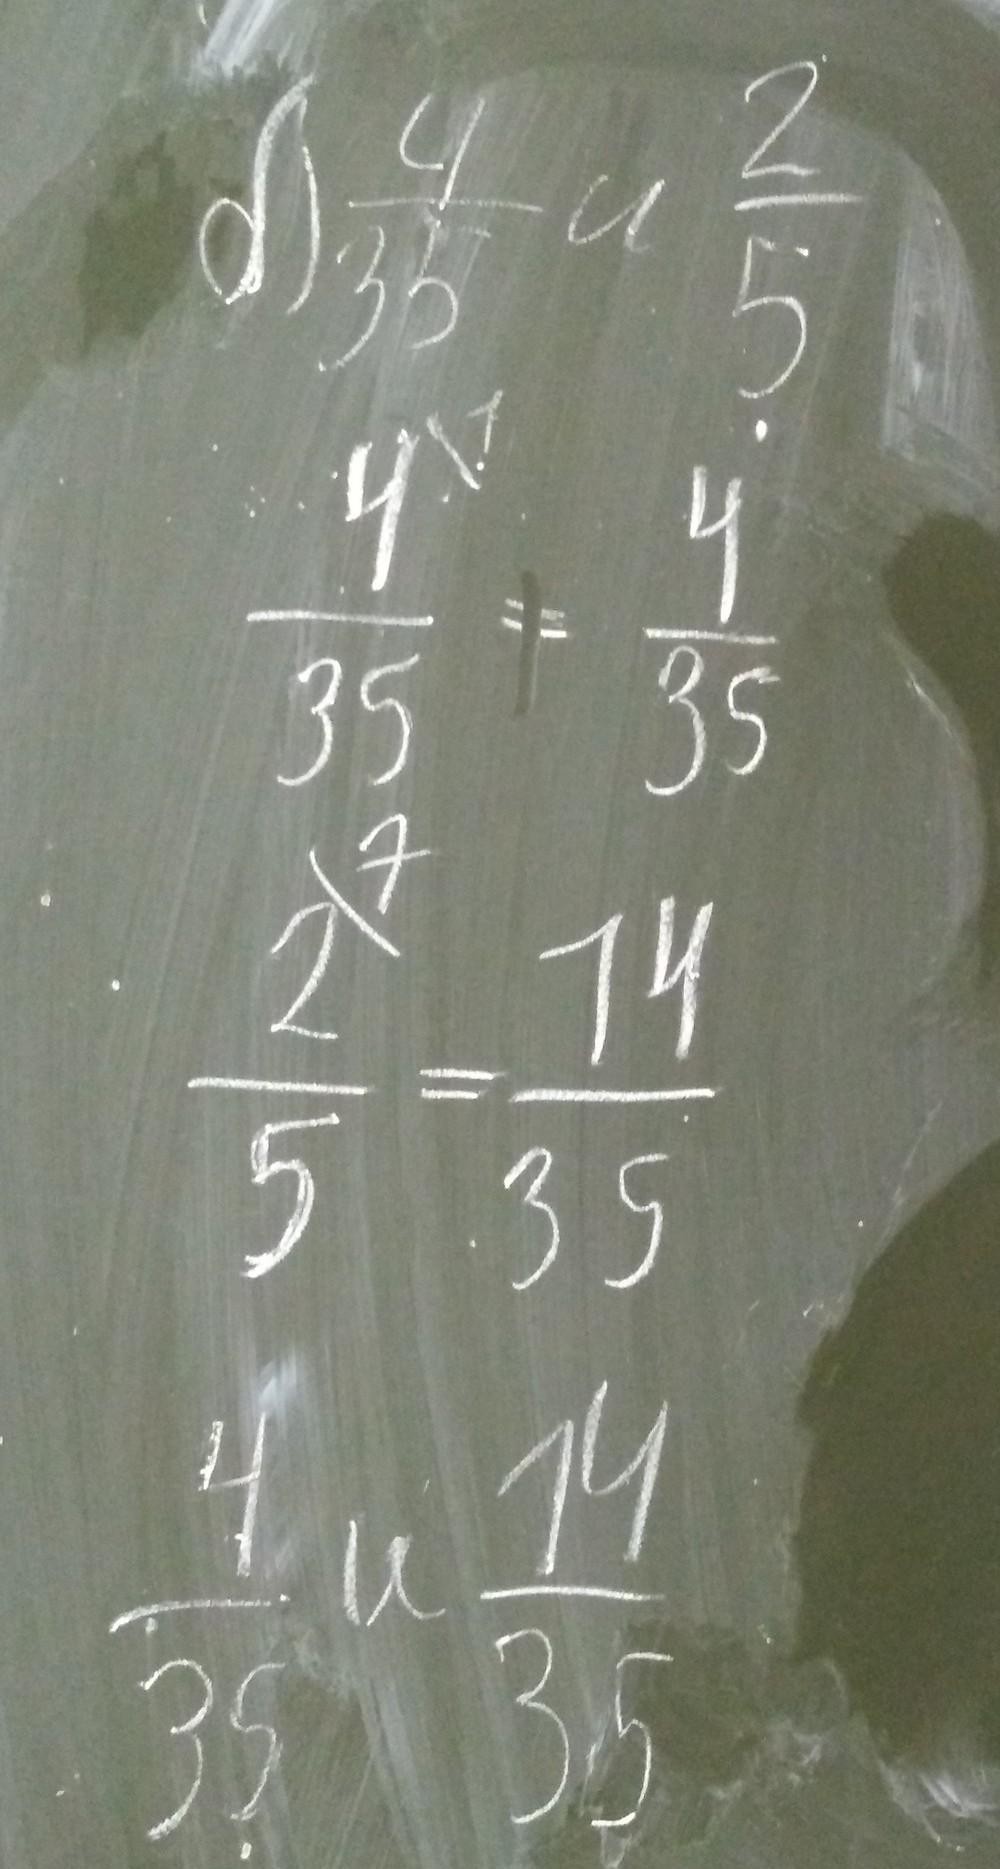 б) 4/35 и 2/5
4\1/35 = 4/35
2\7/5 = 14/35
4/35 и 14/35